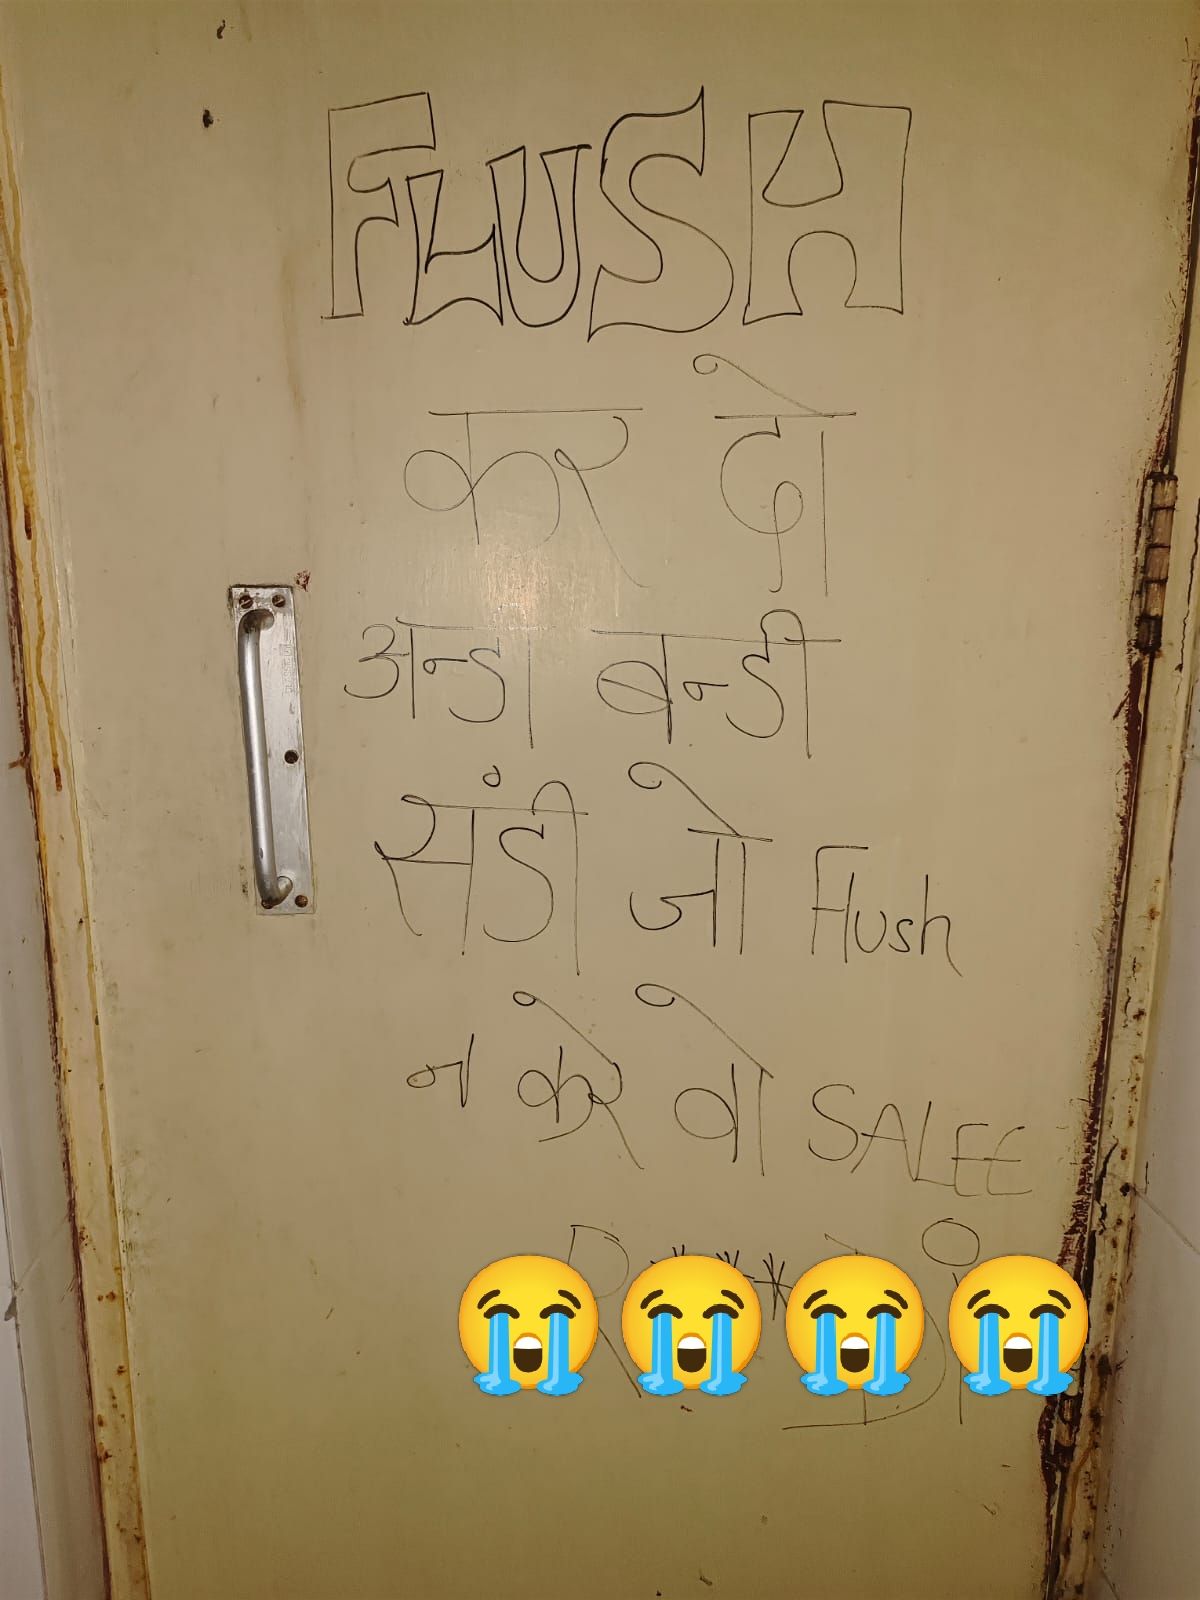 FLUSH
कर दो
अन्डा बन्डी
संडी जो Flush
न करे वो SALEE